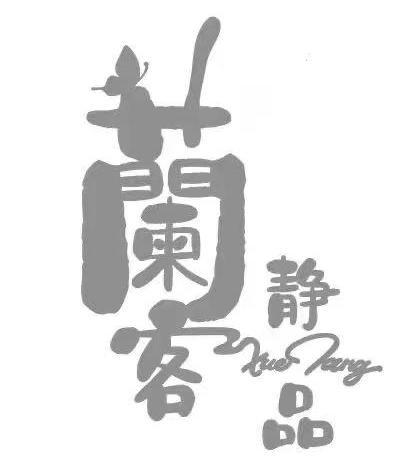 蘭客
静品
Xue Tang